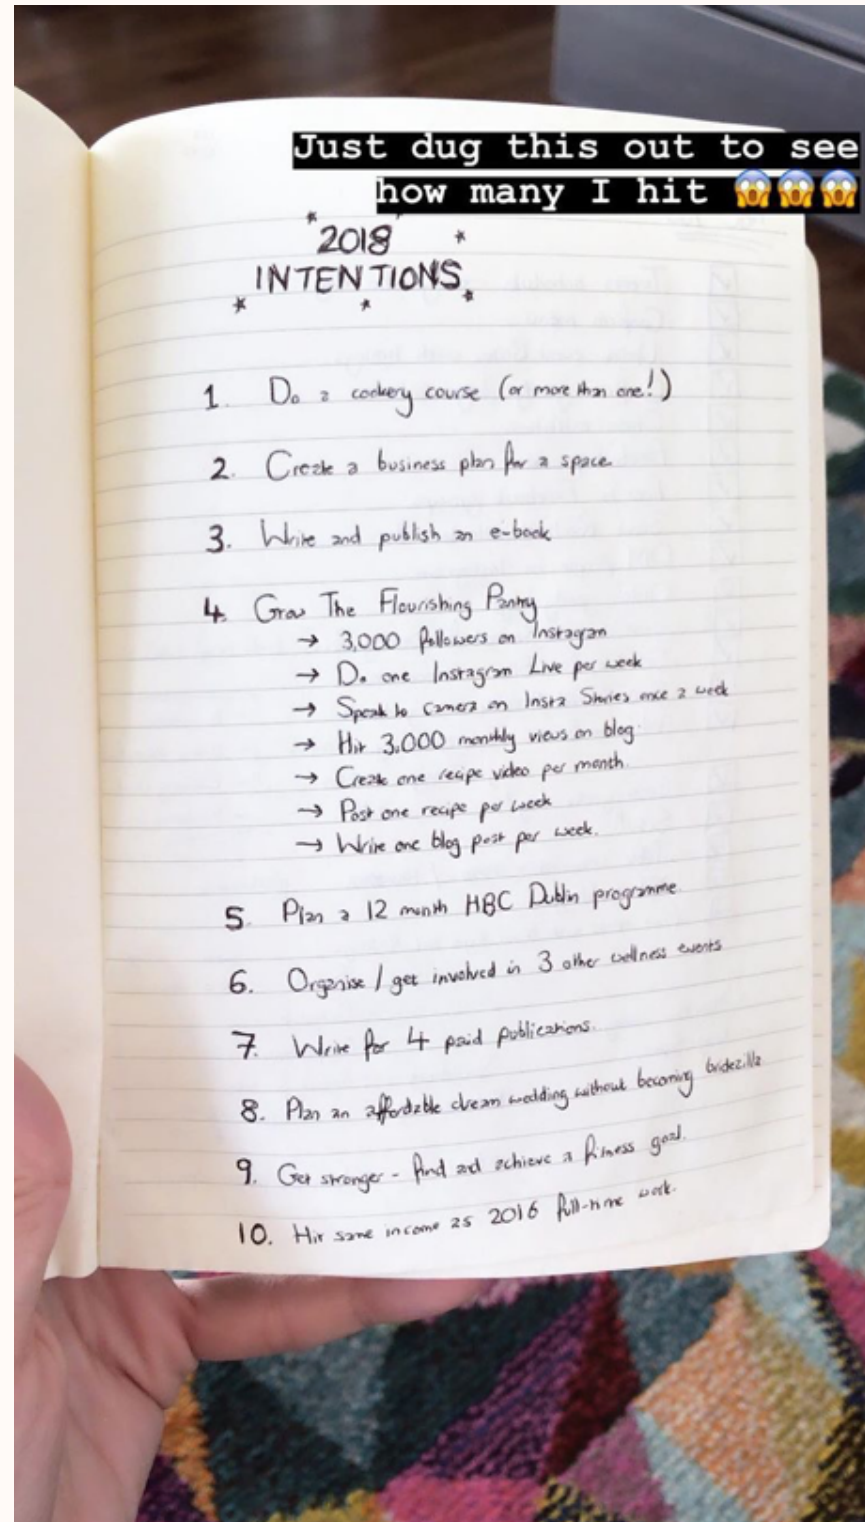 Just dug this out to see
how many I hit 😱😱😱
2018
INTENTIONS
1. Do a cookery course (or more than one!)
2. Create a business plan for a space
3. Write and publish an e-book
4. Grow The Flourishing Pantry
→ 3,000 followers on Instagram
→ Do one Instagram Live per week
→ Speak to camera on Insta Stories once a week
→ Hit 3,000 monthly views on blog
→ Create one recipe video per month.
→ Post one recipe per week
→ Write one blog post per week.
5. Plan a 12 month HBC Dublin programme
6. Organise / get involved in 3 other wellness events
7. Write for 4 paid publications.
8. Plan an affordable dream wedding without becoming bridezilla
9. Get stronger - find and achieve a fitness goal.
10. Hit same income as 2016 full-time work.